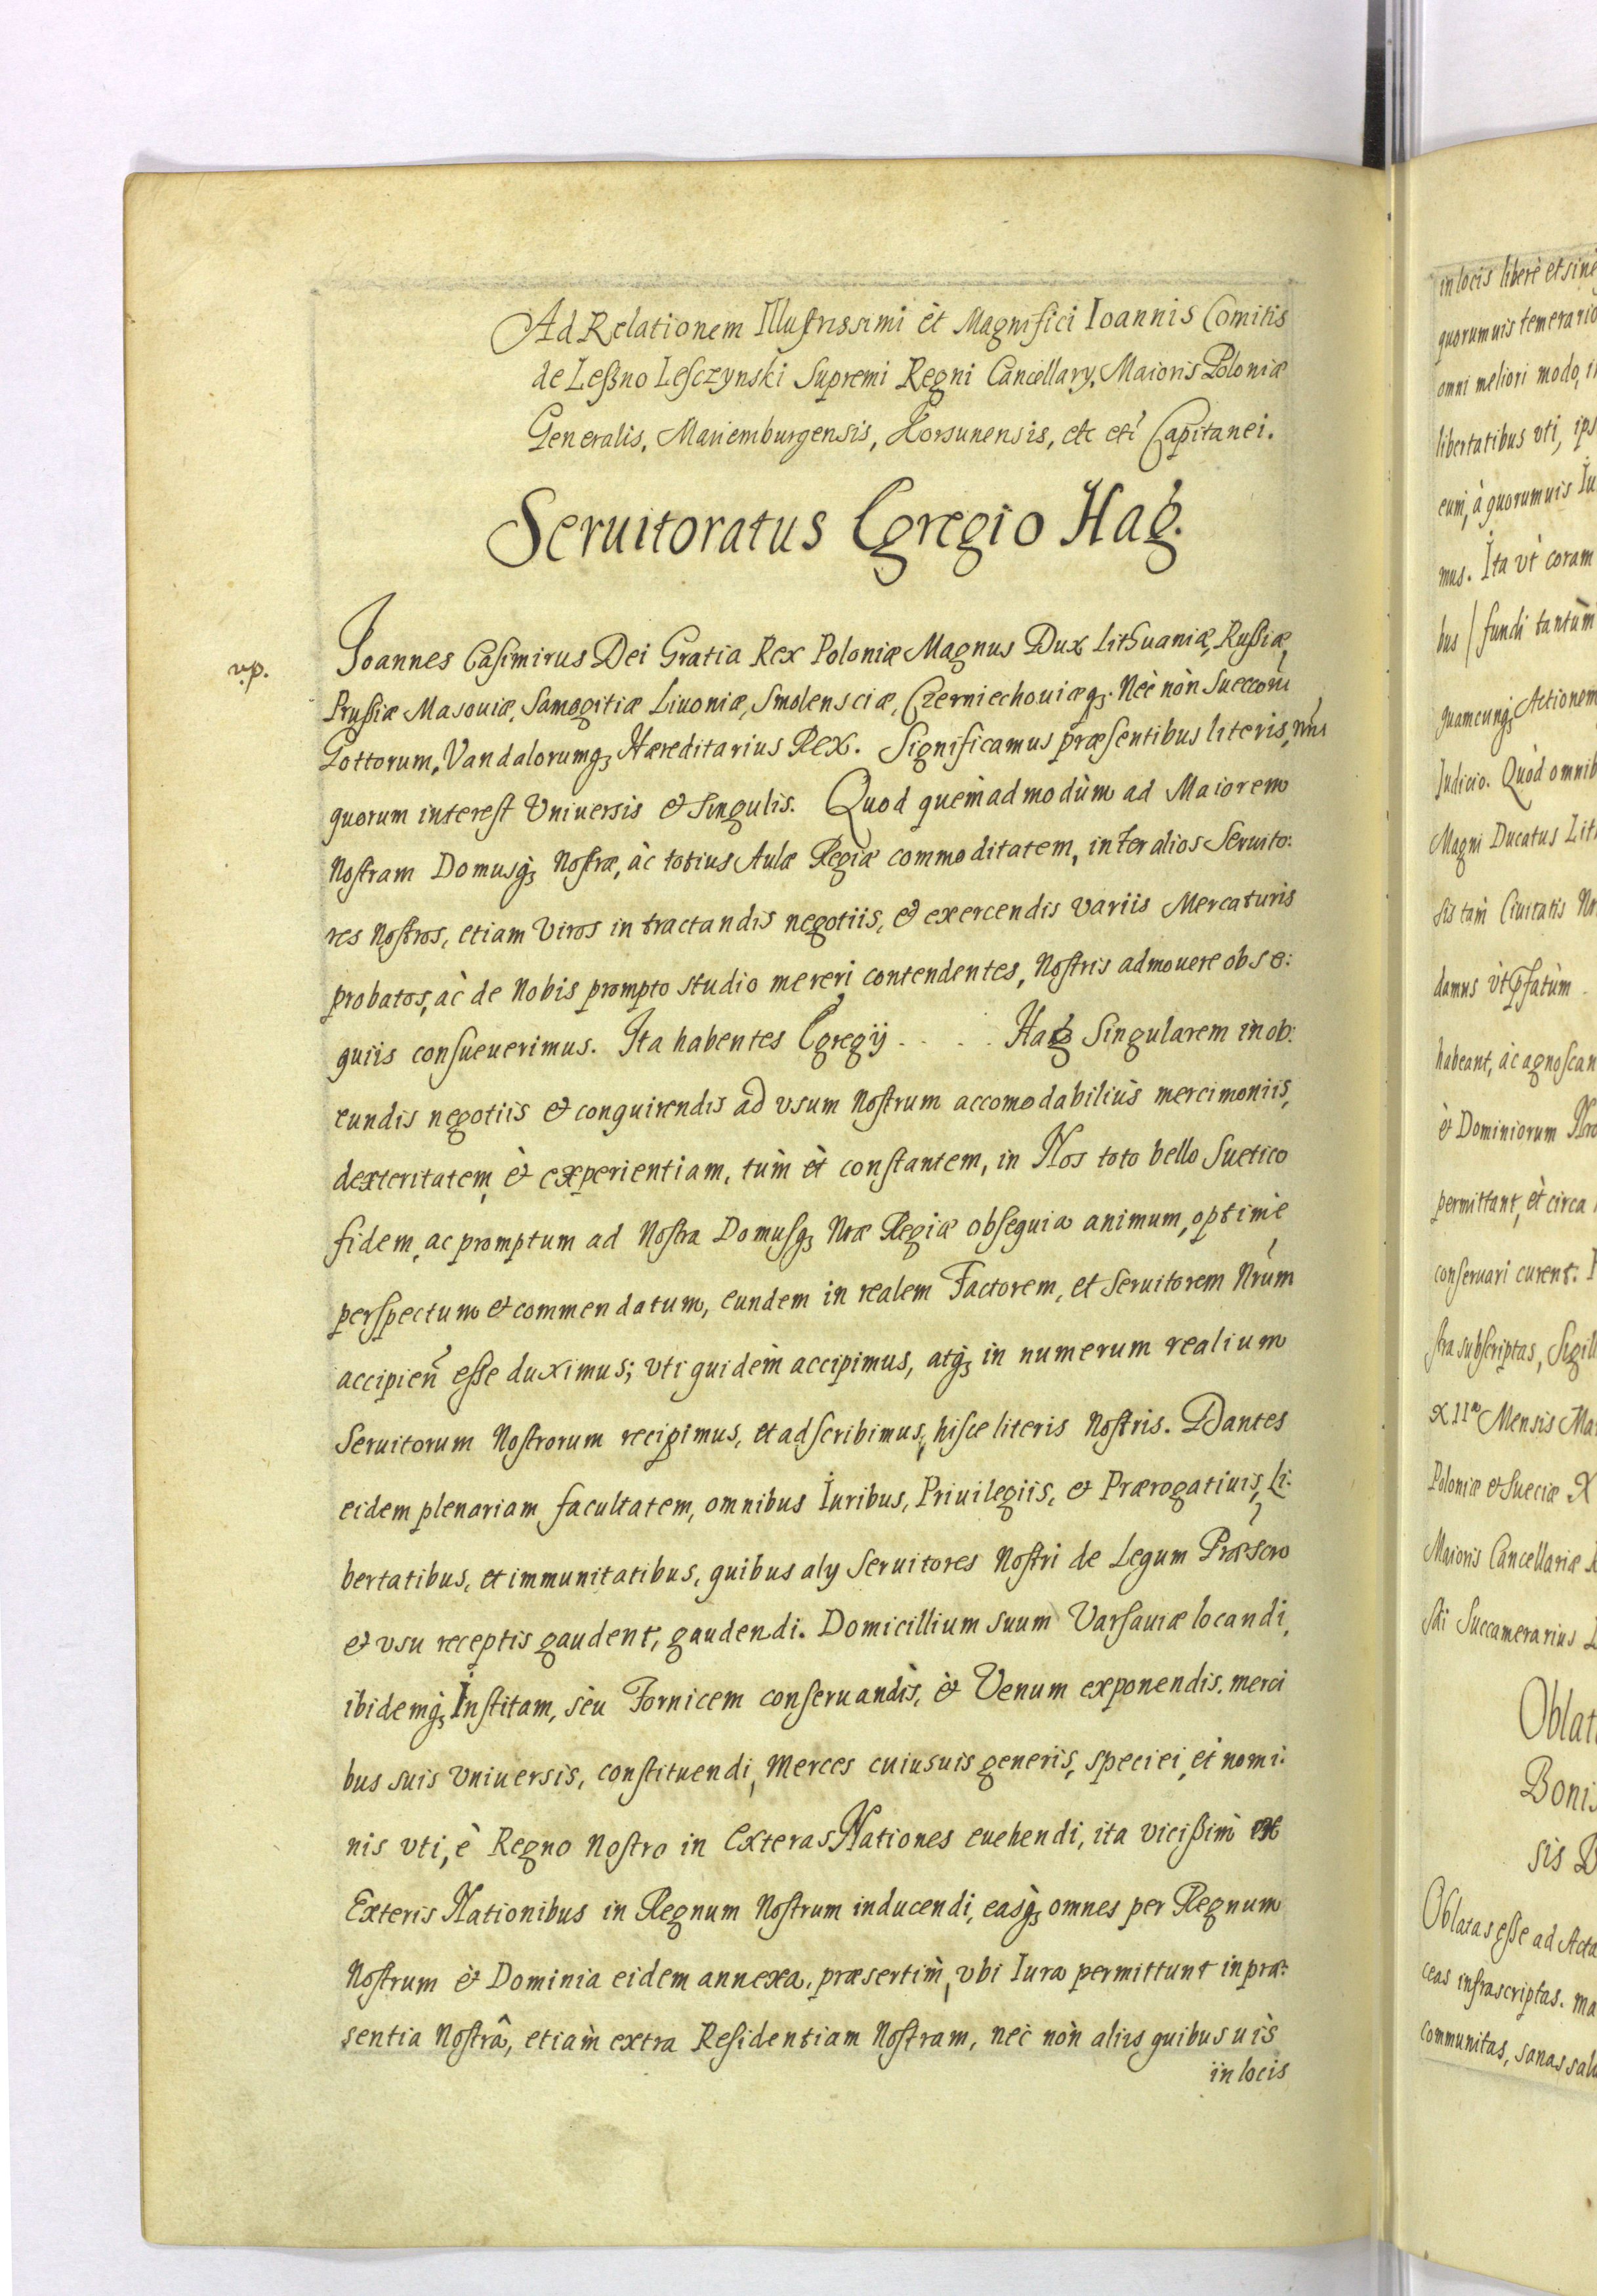 Ad Relationem Illustrissimi èt Magnifici Ioannis Comitis
de Leßno Lesczynski Supremi Regni Cancellary, Maioris Poloniæ
Generalis, Mariemburgensis, Korsunensis, etc etc Capitanei.
Seruitoratus Egregio Hag.
v.p.
Ioannes Casimirus Dei Gratia Rex Poloniæ Magnus Dux Lithuaniæ, Rußiæ,
Prußiæ Masouiæ, Samogitiæ Liuoniæ, Smolensciæ, Czerniechouiæq3. Nèc nòn Suecorū
Gottorum, Vandalorumq3 Hæreditarius Rex. Significamus præsentibus literis,
quorum interest Vniuersis & Singulis. Quod quemàdmodùm ad Maiorem
Nostram Domusq3 Nostræ, àc totius Aulæ Regiæ commoditatem, inter alios Seruito:
res Nostros, etiam Viros in tractandis negotiis, & exercendis variis Mercaturis
probatos, àc de Nobis prompto studio mereri contendentes, Nostris admouere obse:
quiis consueuerimus. Ita habentes Egregij . . . . Hag Singularem in ob:
eundis negotiis & conquirendis ad vsum Nostrum accomodabiliùs mercimoniis,
dexteritatem, & experientiam, tùm èt constantem, in Nos toto bello Suetico
fidem, ac promptum ad Nostra Domusq3 Nræ Regiæ obsequia animum, optimè
perspectum & commendatum, eundem in realem Factorem, et Seruitorem Nrum
accipien̄ eße duximus; vti quidèm accipimus, atq3 in numerum realium
Seruitorum Nostrorum recipimus, et adscribimus, hisce literis Nostris. Dantes
eidem plenariam facultatem, omnibus Iuribus, Priuilegiis, & Prærogatiuis, Li:
bertatibus, et immunitatibus, quibus aly Seruitores Nostri de Legum Præscro
& vsu receptis gaudent, gaudendi. Domicillium suum Varsauiæ locandi,
ibidemq3 Institam, sèu Fornicem conseruandis, & Venum exponendis, merci
bus suis Vniuersis, constituendi, Merces cuiusuis generis, speciei, et nomi:
nis vti, è Regno Nostro in Exteras Nationes euehendi, ita vicißim ex
Exteris Nationibus in Regnum Nostrum inducendi, easq3 omnes per Regnum
Nostrum & Dominia eidem annexa, præsertim, vbi Iura permittunt in præ:
sentia Nostrâ, etiàm extra Residentiam Nostram, nec nòn aliis quibusuis
in locis
in locis liberè et sine
quorumuis temerario
omni meliori modo,
libertatibus vti,
eum, à quorumuis
mus. Ita vt coram
bus / fundi tantùm
quamcunq3 Actionem
Iudicio. Quòd omnib
Magni Ducatus Lit
sis tàm Ciuitatis
damus
habeant, àc agnoscan
& Dominiorum
permittant, èt circa
conseruari curent.
stra subscriptas, Sigill
XII Mensis Ma
Poloniæ & Sueciæ X
Maioris Cancellariæ
Succamerarius
Oblat
Bonis
sis
Oblatas eße ad Acta
ceas infrascriptas. ma
communitas, sanas sal